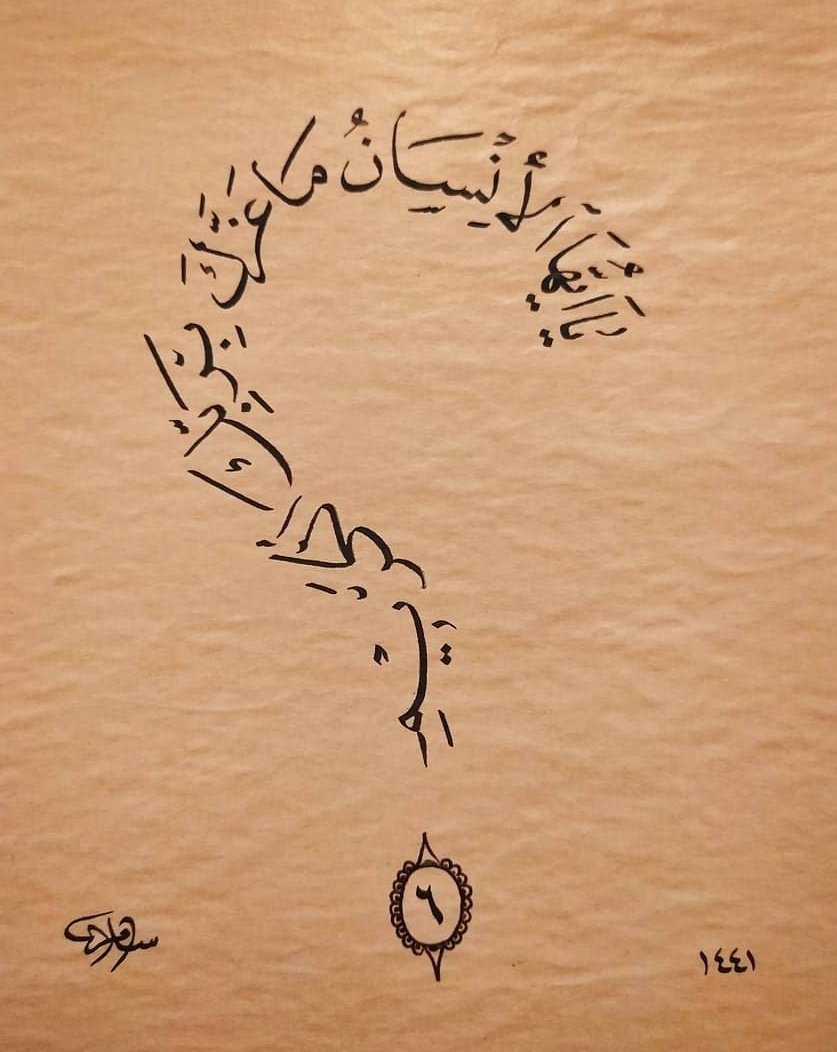 يَا أَيُّهَا الْأِنْسَانُ مَا غَرَّكَ بِرَبِّكَ الْكَرِيمِ
٦
١٤٤١